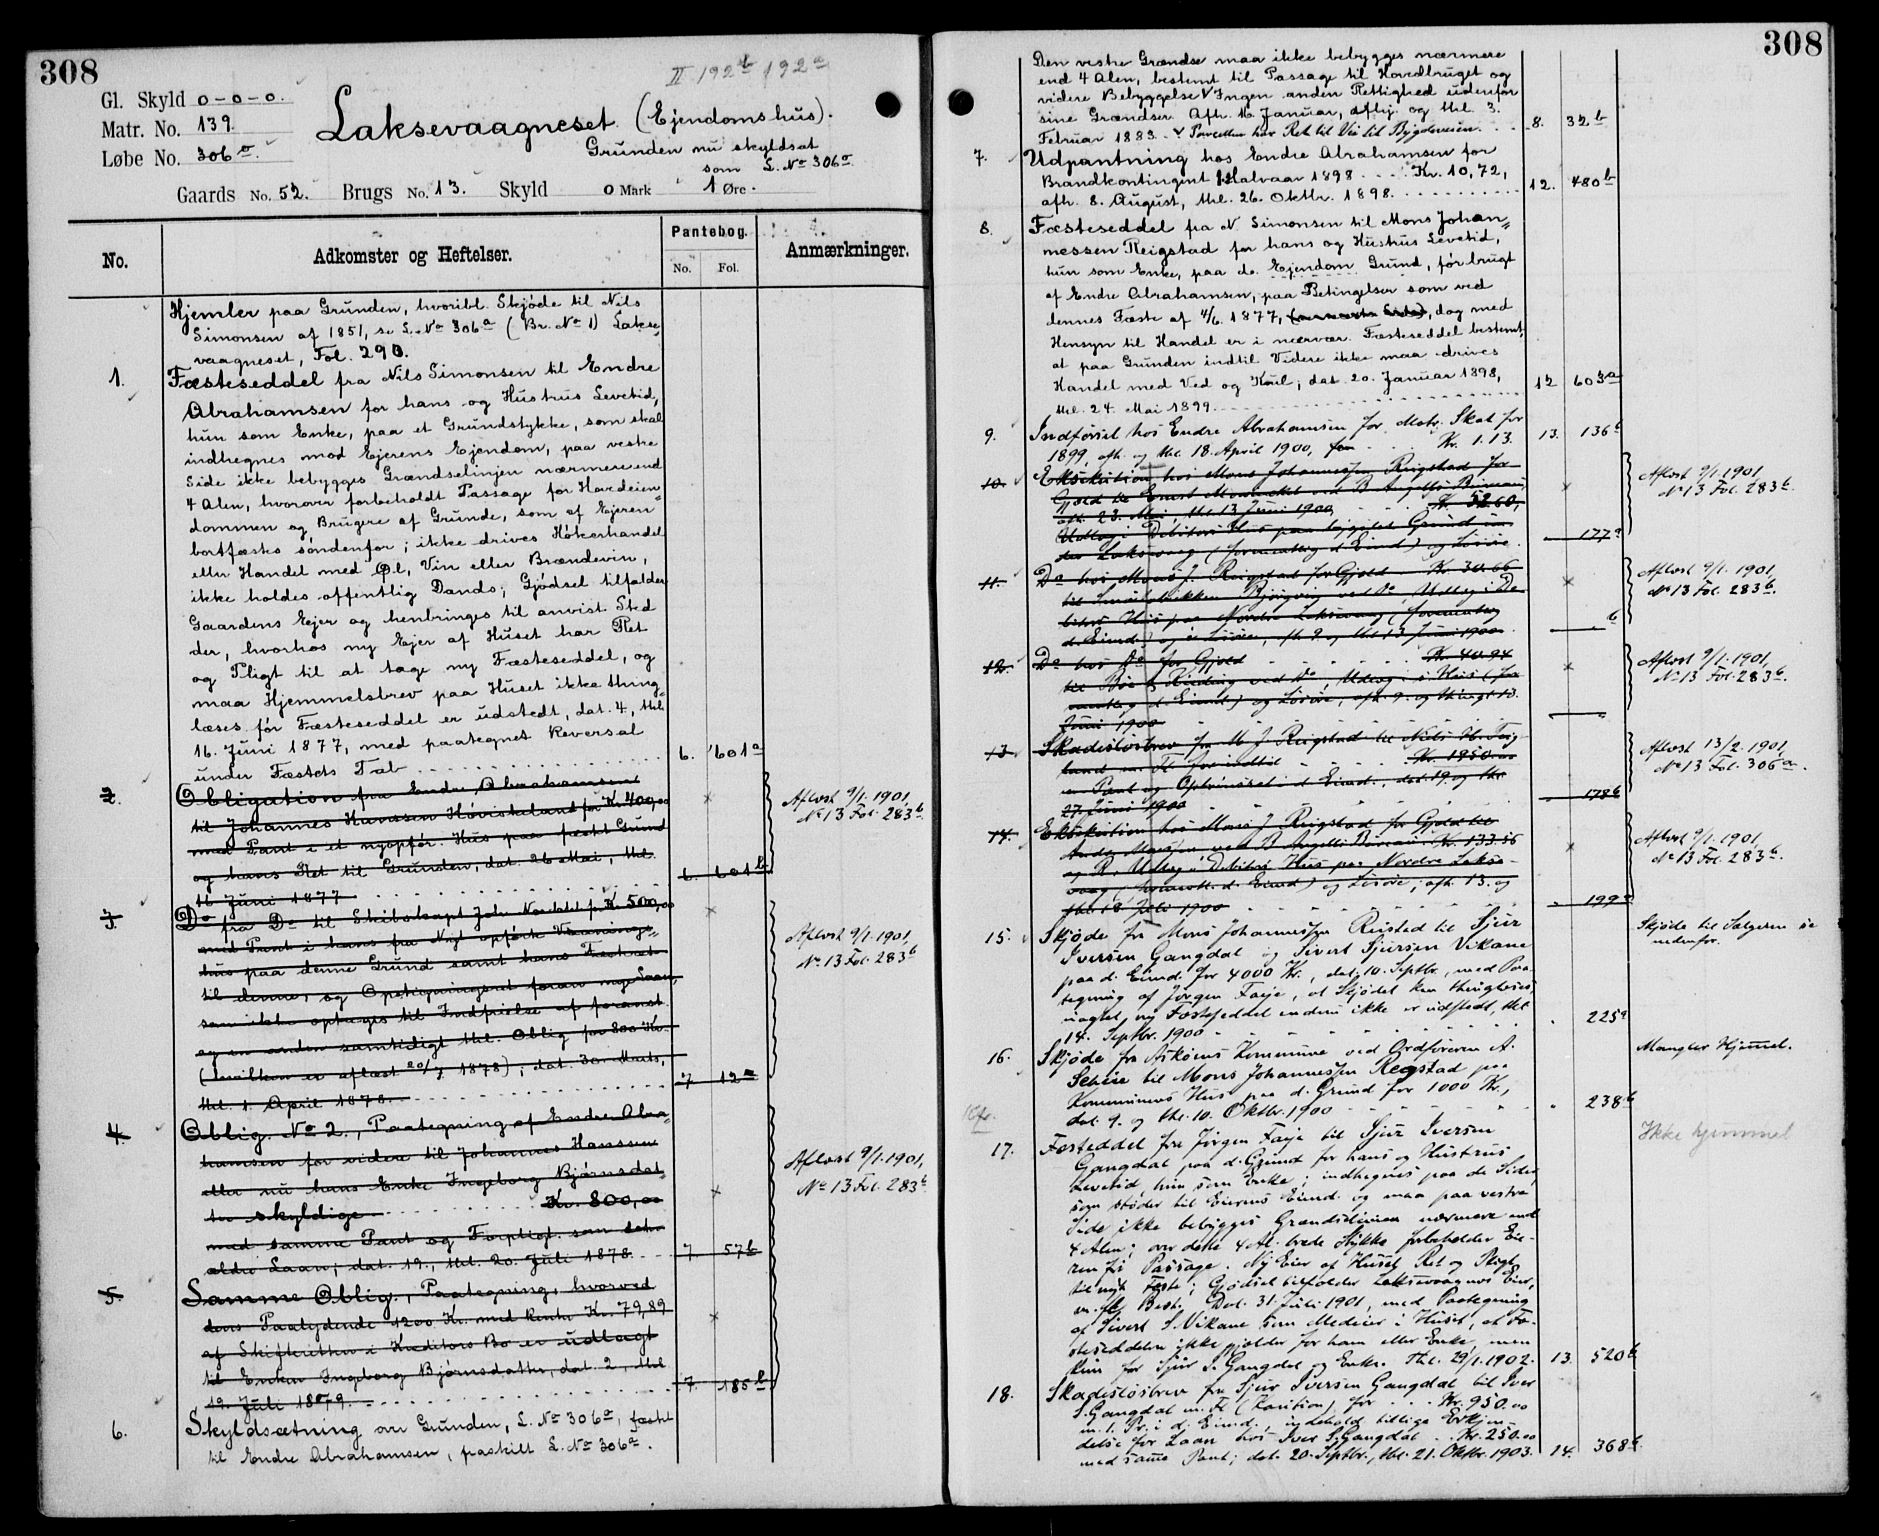 308
II 192b 192a
Gl. Skyld 0-0-0.
Matr. No. 139.
Løbe No. 306a.
Laksevaagneset (Ejendomshus).
Grunden nu skyldsat
som L. No 306a
Gaards No. 52. Brugs No. 13. Skyld 0 Mark 1 Øre.
No.
Adkomster og Heftelser.
Pantebog.
No. Fol.
Anmærkninger.
Hjemler paa Grunden, hvoribl. Skjøde til Nils
Simonsen af 1851, se L. No 306a (Br. No 1) Lakse
vaagneset, Fol. 290.
1. Fæsteseddel fra Nils Simonsen til Endre
Abrahamsen for hans og Hustrus Levetid,
hun som Enke, paa et Grundstykke, som skal
indhegnes mod Ejerens Ejendom, paa vestre
Side ikke bebygges Grændselinjen nærmere end
4 Alen, hvorover forbeholdt Passage for Hovdeien
dommen og Brugere af Grunde, som af Ejeren
bortfæstes søndenfor; ikke drives Høkerhandel
eller Handel med Øl, Vin eller Brændevin,
ikke holdes offentlig Dands; Gjødsel tilfalder
Gaardens Ejer og henbringes til anvist Sted
der, hvorhos ny Ejer af Huset har Ret
og Pligt til at tage ny Fæsteseddel, og
maa Hjemmelsbrev paa Huset ikke thing
læses før Fæsteseddel er udstedt, dat. 4, thl.
16. Juni 1877, med paategnet Reversal
under Fæstets Tab 6. 601a
2. Obligation fra Endre Abrahamsen
til Johannes Hanssen Høviskeland for Kr. 400,00
med Pant i et nyopfør. Hus paa fæstet Grund
og hans Ret til Grunden, dat. 26 Mai, thl.
16 Juni 1877 6. 601b
Aflæst 9/1. 1901,
No 13 Fol. 283b.
3. Do fra Do til Skibskapt. Joh. for Kr. 500,00
med Pant i hans fra Nyt opførte Vaanings
hus paa denne Grund samt hans Fæsteret
til denne, og Opsigningsret foran nye Laan,
som ikke optages til Indfrielse af foranst.
og en anden samtidigt thl. Oblig. for 800 Kr.
(hvilken er aflæst 20/7 1878), dat. 30. Marts,
thl. 1. April 1878. 7 12a
Aflæst 9/1. 1901,
No 13 Fol. 283b
4. Oblig. No 2., Paategning af Endre Abra
hamsen for videre til Johannes Hanssen
eller nu hans Enke Ingeborg Bjørnsdat
ter skyldige Kr. 800,00
med samme Pant og Forpligt. som det
ældre Laan; dat. 19., thl. 20. Juli 1878. 7. 57b
Aflæst 9/1. 1901,
No 13 Fol. 283b.
5. Samme Oblig., Paategning, hvorved
dens Paalydende 1200 Kr. med Renter Kr. 79,89
af Skifteretten i Kreditors Bo er udlagt
til Enken Ingeborg Bjørnsdatter, dat. 2, thl.
19. Juli 1879. 7. 185b
6. Skyldsætning over Grunden, L. No 306a, fæstet
til Endre Abrahamsen, fraskilt L. No 306a.
308
Den vestre Grændse maa ikke bebygges nærmere
end 4 Alen, bestemt til Passage til Hovedbruget og
videre Bebyggelse. Ingen anden Rettighed udenfor
sine Grændser. Afh. 16. Januar, afhj. og thl. 3.
Februar 1883. Parcellen har Ret til Vei til Bygdeveien. 8. 32b
7. Udpantning hos Endre Abrahamsen for
Brandkontingent 1. Halvaar 1898 Kr. 10,72,
afh. 8. August, thl. 26. Oktbr. 1898. 12. 480b
8. Fæsteseddel fra N. Simonsen til Mons Johan
nessen Reigstad for hans og Hustrus Levetid,
hun som Enke, paa de. Ejendom Grund, før brugt
af Endre Abrahamsen, paa Betingelser som ved
dennes Fæste af 4/6. 1877, dog med
Hensyn til Handel er i nærvær. Fæsteseddel bestemt,
at paa Grunden indtil Videre ikke maa drives
Handel med Ved og Kul; dat. 20. Januar 1898,
thl. 24. Mai 1899. 12 603a
9. Indførsel hos Endre Abrahamsen for Matr. Skat for
1899, afh. og thl. 18. April 1900, Kr. 1.13. 13. 136b
10. Eksekution hos Mons Johannessen Reigstad for
Gjæld til Ernst ved B. Angells Bureau,
afh. 23. Mai, thl. 13 Juni 1900 Kr. 52.60,
Udlæg i Debitors Hus paa bygslet Grund
Laksevaag (formentlig d. Eiend.) og Løsøre. 177a
Aflæst 9/1. 1901,
No 13 Fol. 283b.
11. Do hos Mons J. Reigstad for Gjæld Kr. 30.66
til Bjørgvin ved Do, Udlæg i De
bitors Hus paa Nordre Laksevaag (formentlig
d. Eiend.) og i Løsøre, afh. 9. og thl. 13. Juni 1900. b
Aflæst 9/1. 1901,
No 13 Fol. 283b.
12. Do hos Do for Gjæld Kr. 40.94
til ved Do, Udlæg i Hus (for
mentlig d. Eiend.) og Løsøre, afh. 9. og thingl. 13.
Juni 1900
Aflæst 9/1. 1901,
No 13 Fol. 283b.
13. Skadesløsbrev fra M. J. Reigstad til Niels
m. Fl. for indtil Kr. 1950.00
m. Pant og Opt. d. Eiend., dat. 19. og thl.
27. Juni 1900 178b
Aflæst 13/2. 1901,
No 13 Fol. 306a.
14. Eksekution hos Mons J. Reigstad for Gjæld til
ved B. Angells Bureau Kr. 133.56
og R., Udlæg i Debitors Hus paa Nordre Lakse
vaag (forment. d. Eiend.) og Løsøre; afh. 13. og
thl. 18. Juli 1900 199a
Aflæst 9/1. 1901,
No 13 Fol. 283b.
15. Skjøde fra Mons Johannessen Reistad til Sjur
Iversen Gangdal og Sivert Sjursen Vikane
paa d. Eiend. for 4000 Kr., dat. 10. Septbr., med Paa
tegning af Jørgen Faye, at Skjødet kan thinglæses
uagtet ny Fæsteseddel endnu ikke er udstedt, thl.
14. Septbr. 1900 225a
Skjøde til Sælgeren se
nedenfor.
16. Skjøde fra Askøens Kommune ved Ordføreren A.
til Mons Johannessen Reigstad paa
Kommunens Hus paa d. Grund for 1000 Kr.,
dat. 9. og thl. 10. Oktbr. 1900 238b
Mangler Hjemmel.
17. Fæsteseddel fra Jørgen Faye til Sjur Iversen
Gangdal paa d. Grund for hans og Hustrus
Levetid, hun som Enke; indhegnes paa de Sider,
som støder til Eierens Eiend. og maa paa vestre
Side ikke bebygges Grændselinien nærmere end
4 Alen; over dette 4 Al. brede Stykke forbeholder Eie-
ren fri Passage. Ny Eier af Huset Ret og Pligt
til nyt Fæste; Gjødsel tilfalder Laksevaagnes Eier,
m. fl. Best. Dat. 31. Juli 1901, med Paategning
af Sivert S. Vikane som Medeier i Huset, at Fæ-
steseddelen ikke gjælder for ham eller Enke, men
kun for Sjur I. Gangdal og Enke. Thl. 29/1. 1902. 13. 520b
Ikke hjemmel
18. Skadesløsbrev fra Sjur Iversen Gangdal til Iver
S. Gangdal m. Fl. (Kaution) for Kr. 950.00
m. 1. Pr. i d. Eiend., indehold. tillige Erkjen-
delse for Laan hos Iver S. Gangdal Kr. 250.00
med samme Pant; dat. 20. Septbr., thl. 21. Oktbr. 1903. 14. 368b